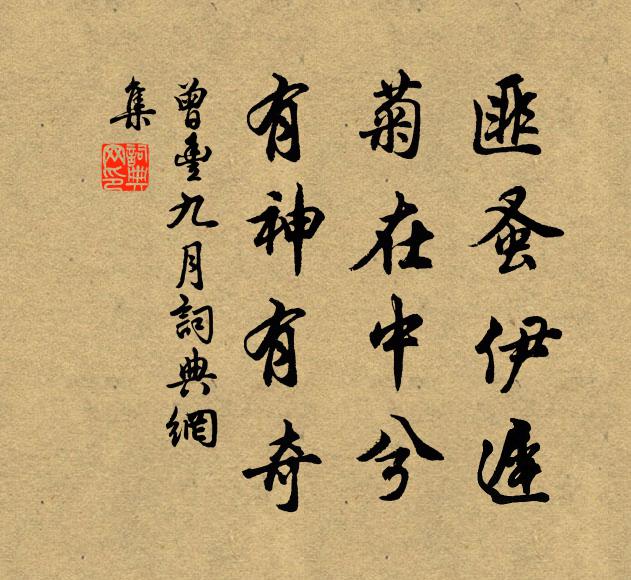 匪蚤伊遲
菊在中兮
有神有奇
曾豐九月詞典網
集
詞典
网印